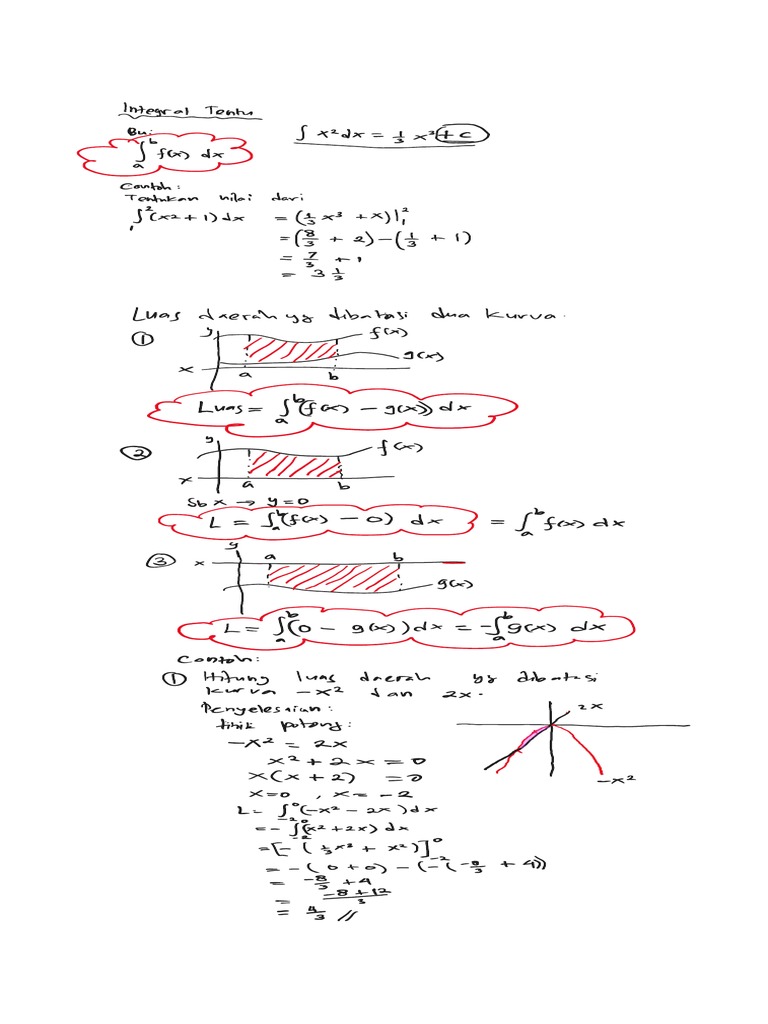 Integral Tentu
Bu:
∫ x² dx = 1/3 x³ + c
∫_a^b f(x) dx
Contoh:
Tentukan nilai dari
∫_1^2 (x² + 1) dx = (1/3 x³ + x)|_1^2
= (8/3 + 2) - (1/3 + 1)
= 7/3 + 1
= 3 1/3
Luas daerah yg dibatasi dua kurva.
① y f(x)
g(x)
x a b
Luas = ∫_a^b (f(x) - g(x)) dx
② y f(x)
x a b
Sb x → y = 0
L = ∫_a^b (f(x) - 0) dx = ∫_a^b f(x) dx
③ y x a b
g(x)
L = ∫_a^b (0 - g(x)) dx = -∫_a^b g(x) dx
Contoh:
① Hitung luas daerah yg dibatasi
kurva -x² dan 2x.
Penyelesaian:
titik potong:
-x² = 2x
x² + 2x = 0
x(x + 2) = 0
x = 0 , x = -2
2x
-x²
L = ∫_-2^0 (-x² - 2x) dx
= -∫_-2^0 (x² + 2x) dx
= [-(1/3 x³ + x²)]_-2^0
= -(0 + 0) - (-(-8/3 + 4))
= -8/3 + 4
= (-8 + 12)/3
= 4/3 //